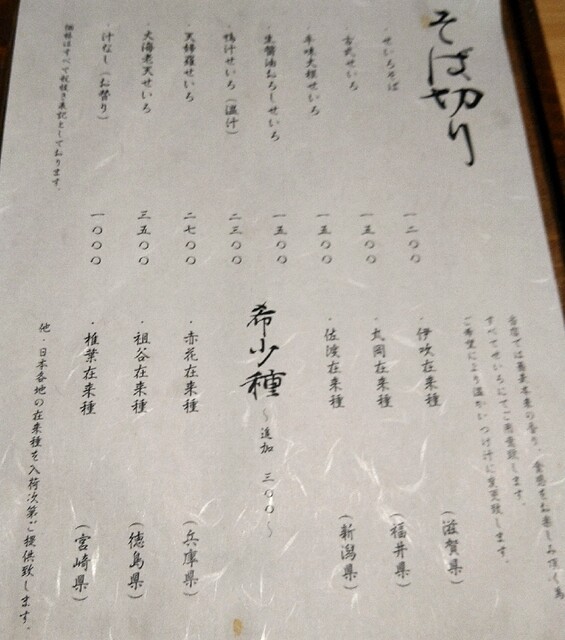 そば切り
・せいろそば 一二〇〇
・古式せいろ 一五〇〇
・辛味大根せいろ 一五〇〇
・生醤油おろしせいろ 一五〇〇
・鴨汁せいろ（温汁） 二三〇〇
・天婦羅せいろ 二七〇〇
・大海老天せいろ 三五〇〇
・汁なし（お替り） 一〇〇〇
価格はすべて税抜き表記としております。
当店では蕎麦本来の香り、食感をお楽しみ頂く為
すべてせいろにてご用意致します。
ご希望により温かいつけ汁に変更致します。
・伊吹在来種（滋賀県）
・丸岡在来種（福井県）
・佐渡在来種（新潟県）
希少種 〜追加 三〇〇〜
・赤花在来種（兵庫県）
・祖谷在来種（徳島県）
・椎葉在来種（宮崎県）
他・日本各地の在来種を入荷次第ご提供致します。